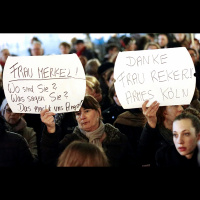 FRAU MERKEL!
Wo sind Sie?
Was sagen Sie?
Das macht uns
DANKE
FRAU REKER!
KÖLN